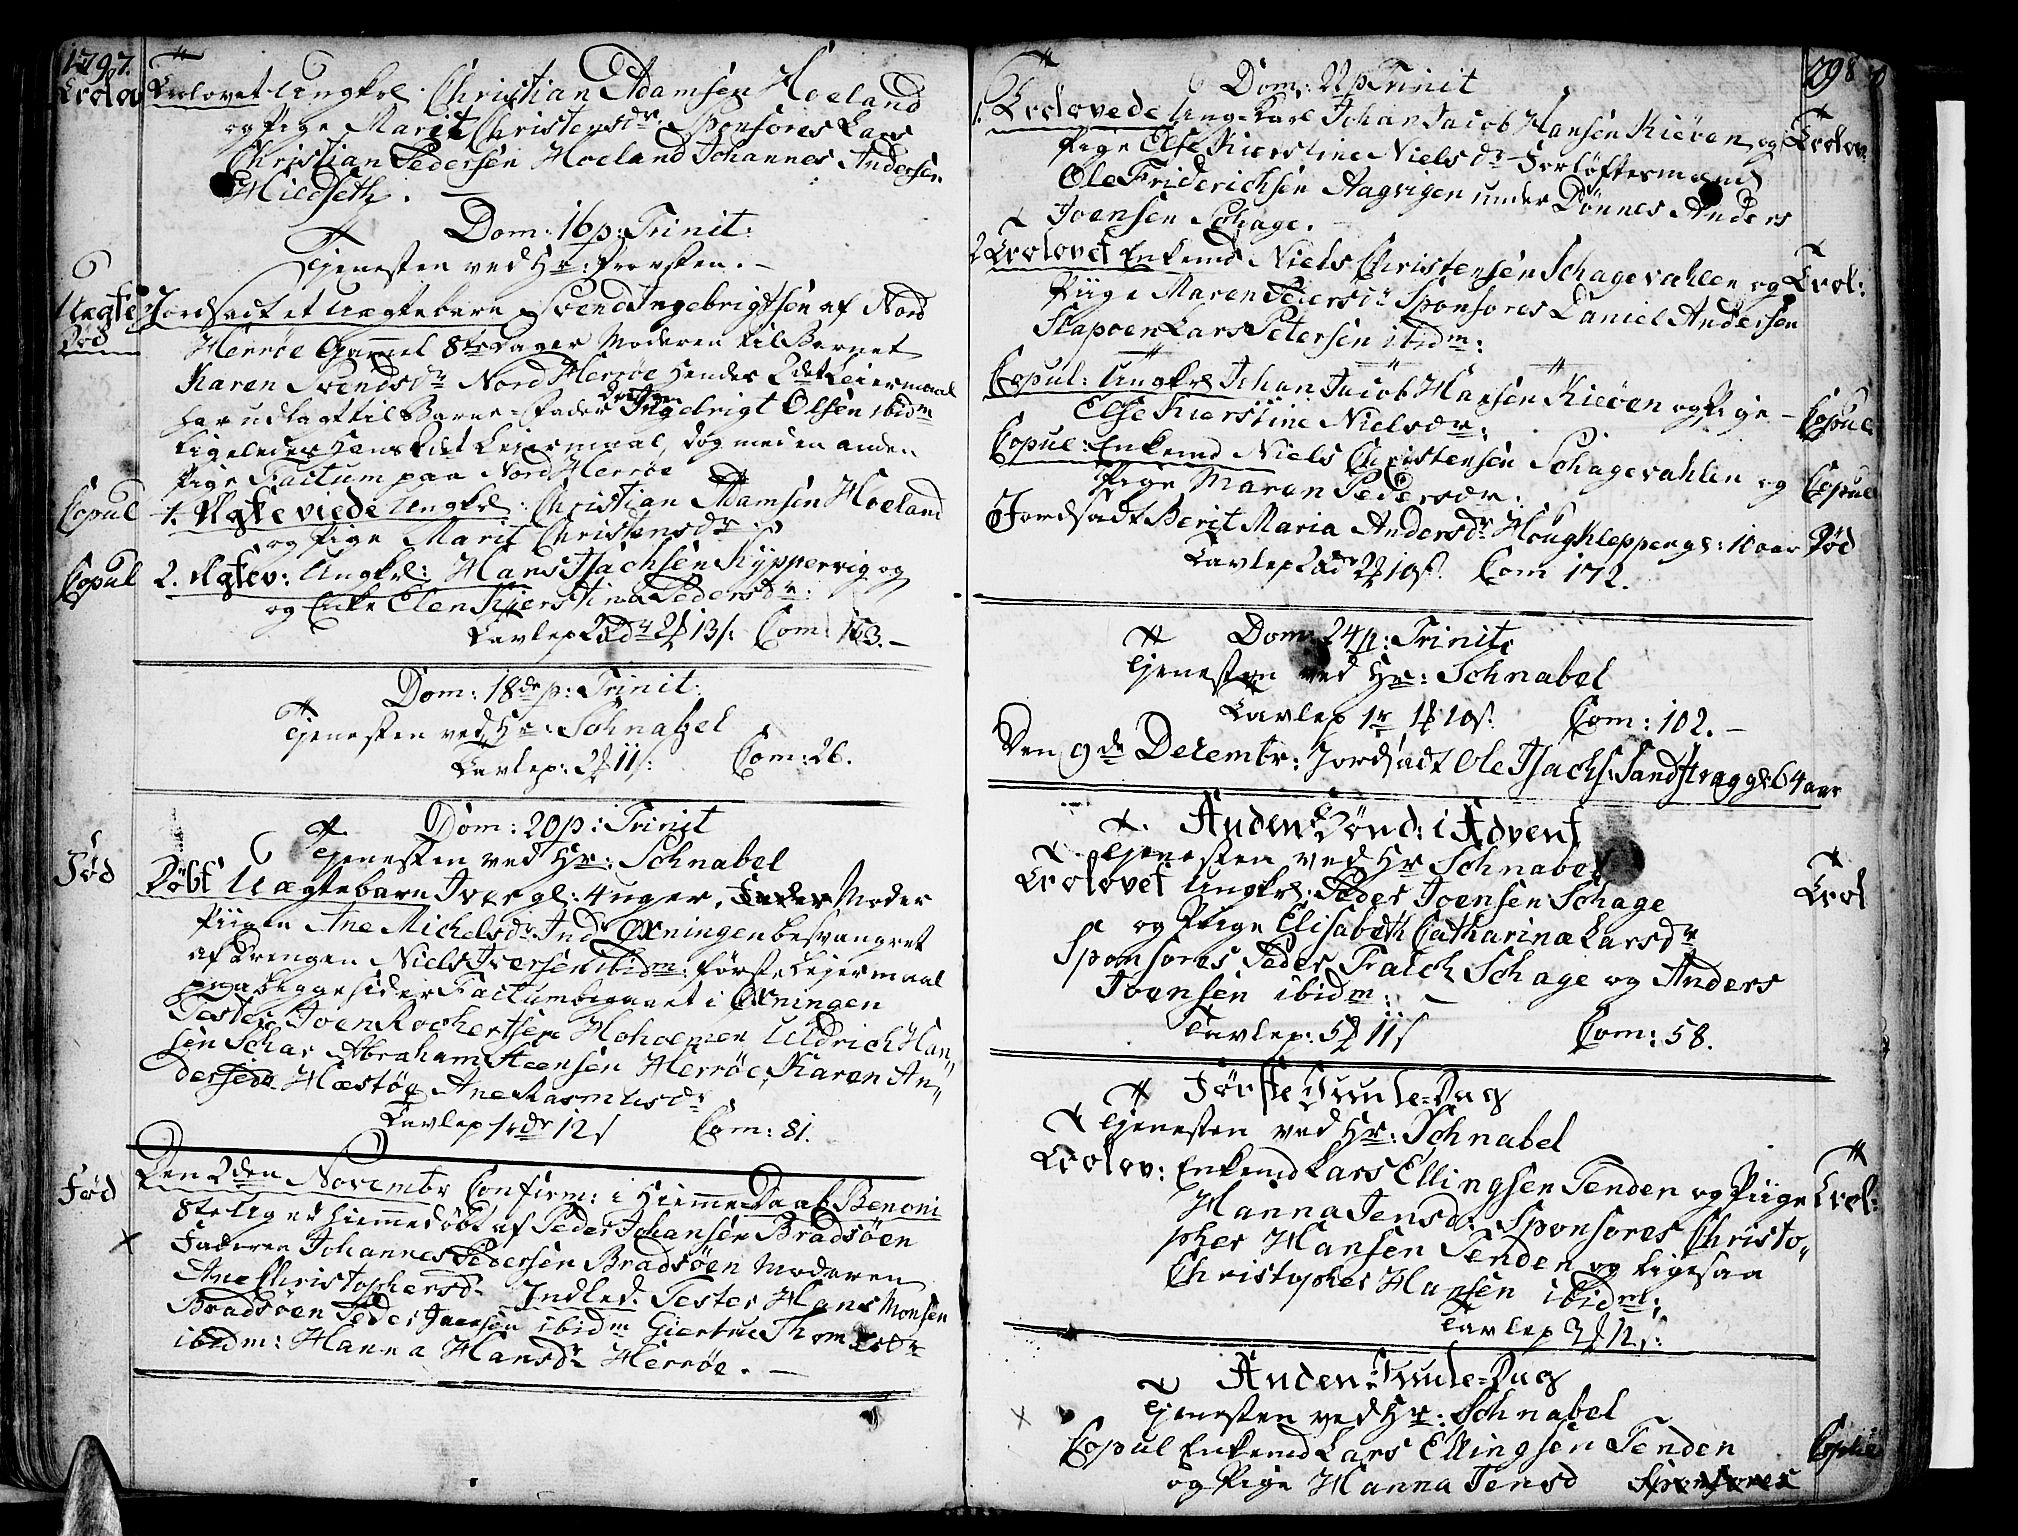 1797.
Trolov
Trolovet Ungkrl. Christian Adamsen Hoeland
og Pige Marit Christensdr. Sponsores Lars
Christian Pedersen Hoeland Johannes Andersen
Mildseth.
Dom: 16 p: Trinit:
Tjenesten ved Hr: Provsten.
Uægte
Død
Jordsadt et Uægtebarn Svend Ingebrigtsen af Nord
Herrøe Gammel 8te Dager Moderen til Barnet
Karen Svendsdr Nord Herrøe hendes 2det Leiermaal
har udlagt til Barne-Fader Ingebrigt Olsen ibidm
ligeledes hans 2det Leiermaal, dog med en anden
Pige Factum paa Nord Herrøe
Copul
1. Ægteviede Ungkrl: Christian Adamsen Hoeland
og Pige Marit Christensdr
Copul
2. Ægtev: Ungkrl: Hans Isachsen Kyppervig og
og Enke Elen Kierstina Pedersdr:
Tavlep 2rdr 2 13 s. Com: 163.
Dom: 18de p: Trinit:
Tjenesten ved Hr: Schnabel
Tavlep: 2 11 s: Com: 26.
Dom: 20 p: Trinit
Tjenesten ved Hr: Schnabel
Fød
Døbt Uægtebarn Iver gl: 4 uger, Fader Moder
Piigen Ane Michelsdr Indr Øxningen besvangret
af Drengen Niels Iversen ibidm: første Leiermaal
paa begge sider Factum begaaet i Øxningen
Testes Joen Rochertsen Hoholmen Uldrich Han-
sen Schar Abraham Steensen Herrøe, Karen An-
dersedr Hæstøe Ane Rasmusdr
Tavlep 1rdr 12 s Com: 81.
Fød
Den 2den Novembr Confirm: i Hiemme Daab Benoni
8te Uger hiemmedøbt af Peder Johansen Bradsøen
Faderen Johannes Pedersen Bradsøen Moderen
Ane Christophersd. Indled. Testes Hans Monsen
Bradsøen Peder ibidm Giertru Thomædr
ibidm: Hanna Hansdr Herrøe.
298
Dom: 22 p Trinit
1. Trolovede Ung-Karl Johan Jacob Hansen Kieøen og Trolov:
Pige Else Kierstine Nielsdr Forløftesmænd
Ole Friderichsen Aagvigen under Dønnes Anders
Joensen Schage.
2 Trolovet Enkemd Niels Christensen Schagevahlen og Trol:
Piige Maren Pedersdr Sponsores Daniel Andersen
Slapøen Lars Petersen ibidm:
Copul: Ungkrl Johan Jacob Hansen Kieøen og Pige Copul
Else Kierstine Nielsdr:
Copul: Enkemd Niels Christensen Schagevahlen og Copul
Pige Maren Pedersdr.
Jordsadt Berit Maria Andersdr Houghleppen gl: 10 aar Død
Tavlep 2rdr 2 10 s. Com 172.
Dom: 24 p: Trinit:
Tjenesten ved Hr: Schnabel
Tavlep 1r 1 10 s. Com: 102.
Den 9de Decembr: Jordsadt Ole Isachs: Sandstrag gl 64 aar
Anden Sønd: i Advent
Tjenesten ved Hr Schnabel
Trolovet Ungkrl: Peder Joensen Schage Trol
og Piige Elisabeth Catharina Larsdr
Sponsores Peder Falch Schage og Anders
Joensen ibidm:
Tavlep: 5 11 s Com: 58.
Første Juule-Dag
Tjenesten ved Hr: Schnabel
Trolov: Enkemd Lars Ellingsen Tenden og Piige Trol:
Hanna Jensd: Sponsores Christo-
pher Hansen Tenden og ligesaa
Christopher Hansen ibidm:
Tavlep 3 12 s:
Anden Juule-Dag
Tjenesten ved Hr: Schnabel
Copul Enkemd Lars Ellingsen Tenden Copul
og Pige Hanna Jensd Sponsores